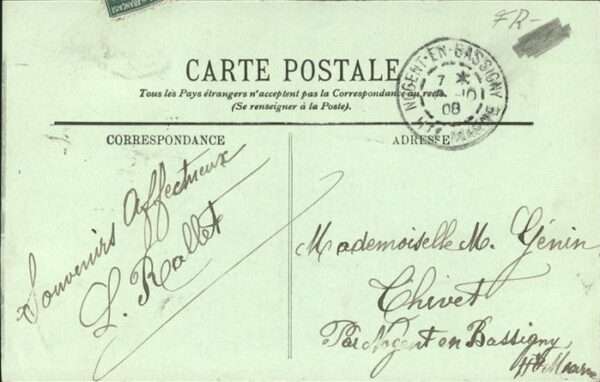 FR-
CARTE POSTALE
Tous les Pays étrangers n'acceptent pas la Correspondance au recto
(Se renseigner à la Poste).
NOGENT-EN-BASSIGNY
7
08
HTE MARNE
CORRESPONDANCE
ADRESSE
Souvenirs Affectueux
L. Rallet
Mademoiselle M. Génin
Thivet
Par Nogent en Bassigny
Hte Marne